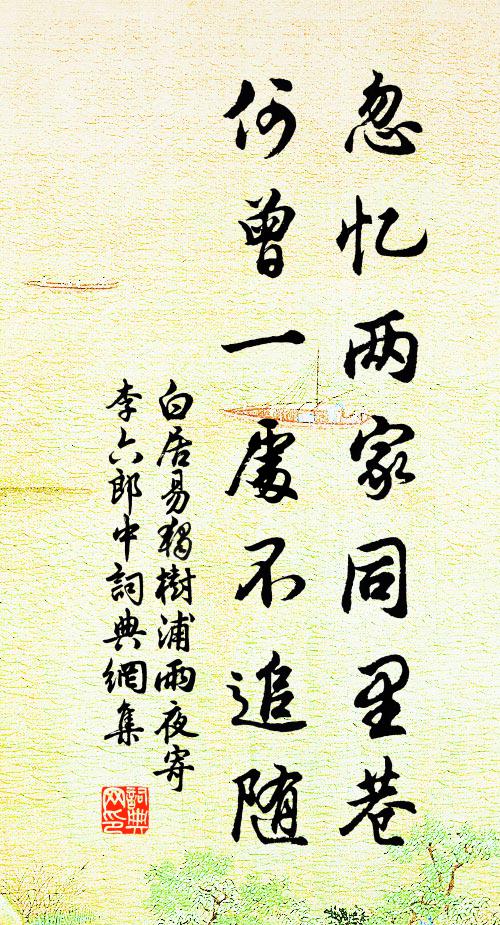 忽忆两家同里巷
何曾一處不追随
白居易獨樹浦雨夜寄
李六郎中詞典網集
詞典
网印